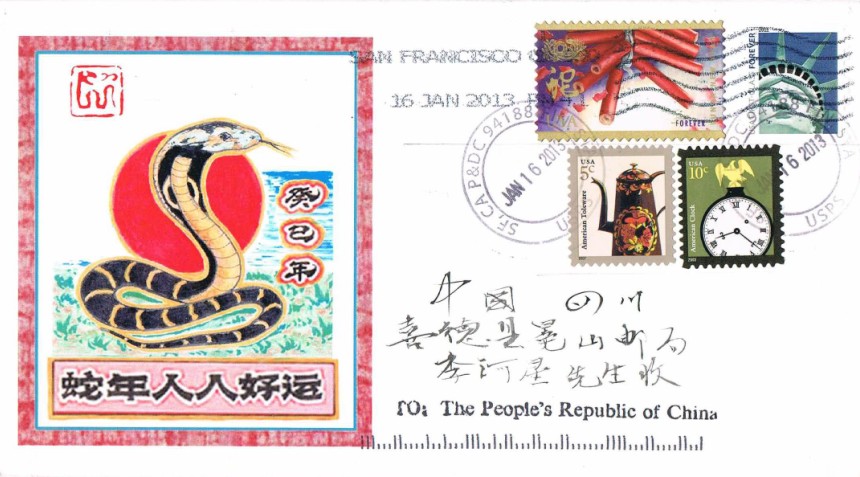 癸巳年
蛇年人人好运
SAN FRANCISCO
16 JAN 2013 PM 4 1
SF, CA P&DC 94188
JAN 16 2013
USPS
蛇
FOREVER
FOREVER
94188
JAN 16 2013
USPS
USA
5c
American Toleware
USA
10c
American Clock
中国 四川
喜德县冕山邮局
李河星先生收
TO: The People's Republic of China